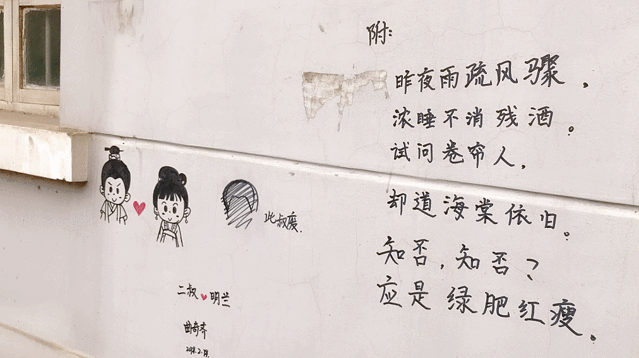 附:
昨夜雨疏风骤,
浓睡不消残酒。
试问卷帘人,
却道海棠依旧。
知否,知否?
应是绿肥红瘦。
此叔废.
二叔 明兰